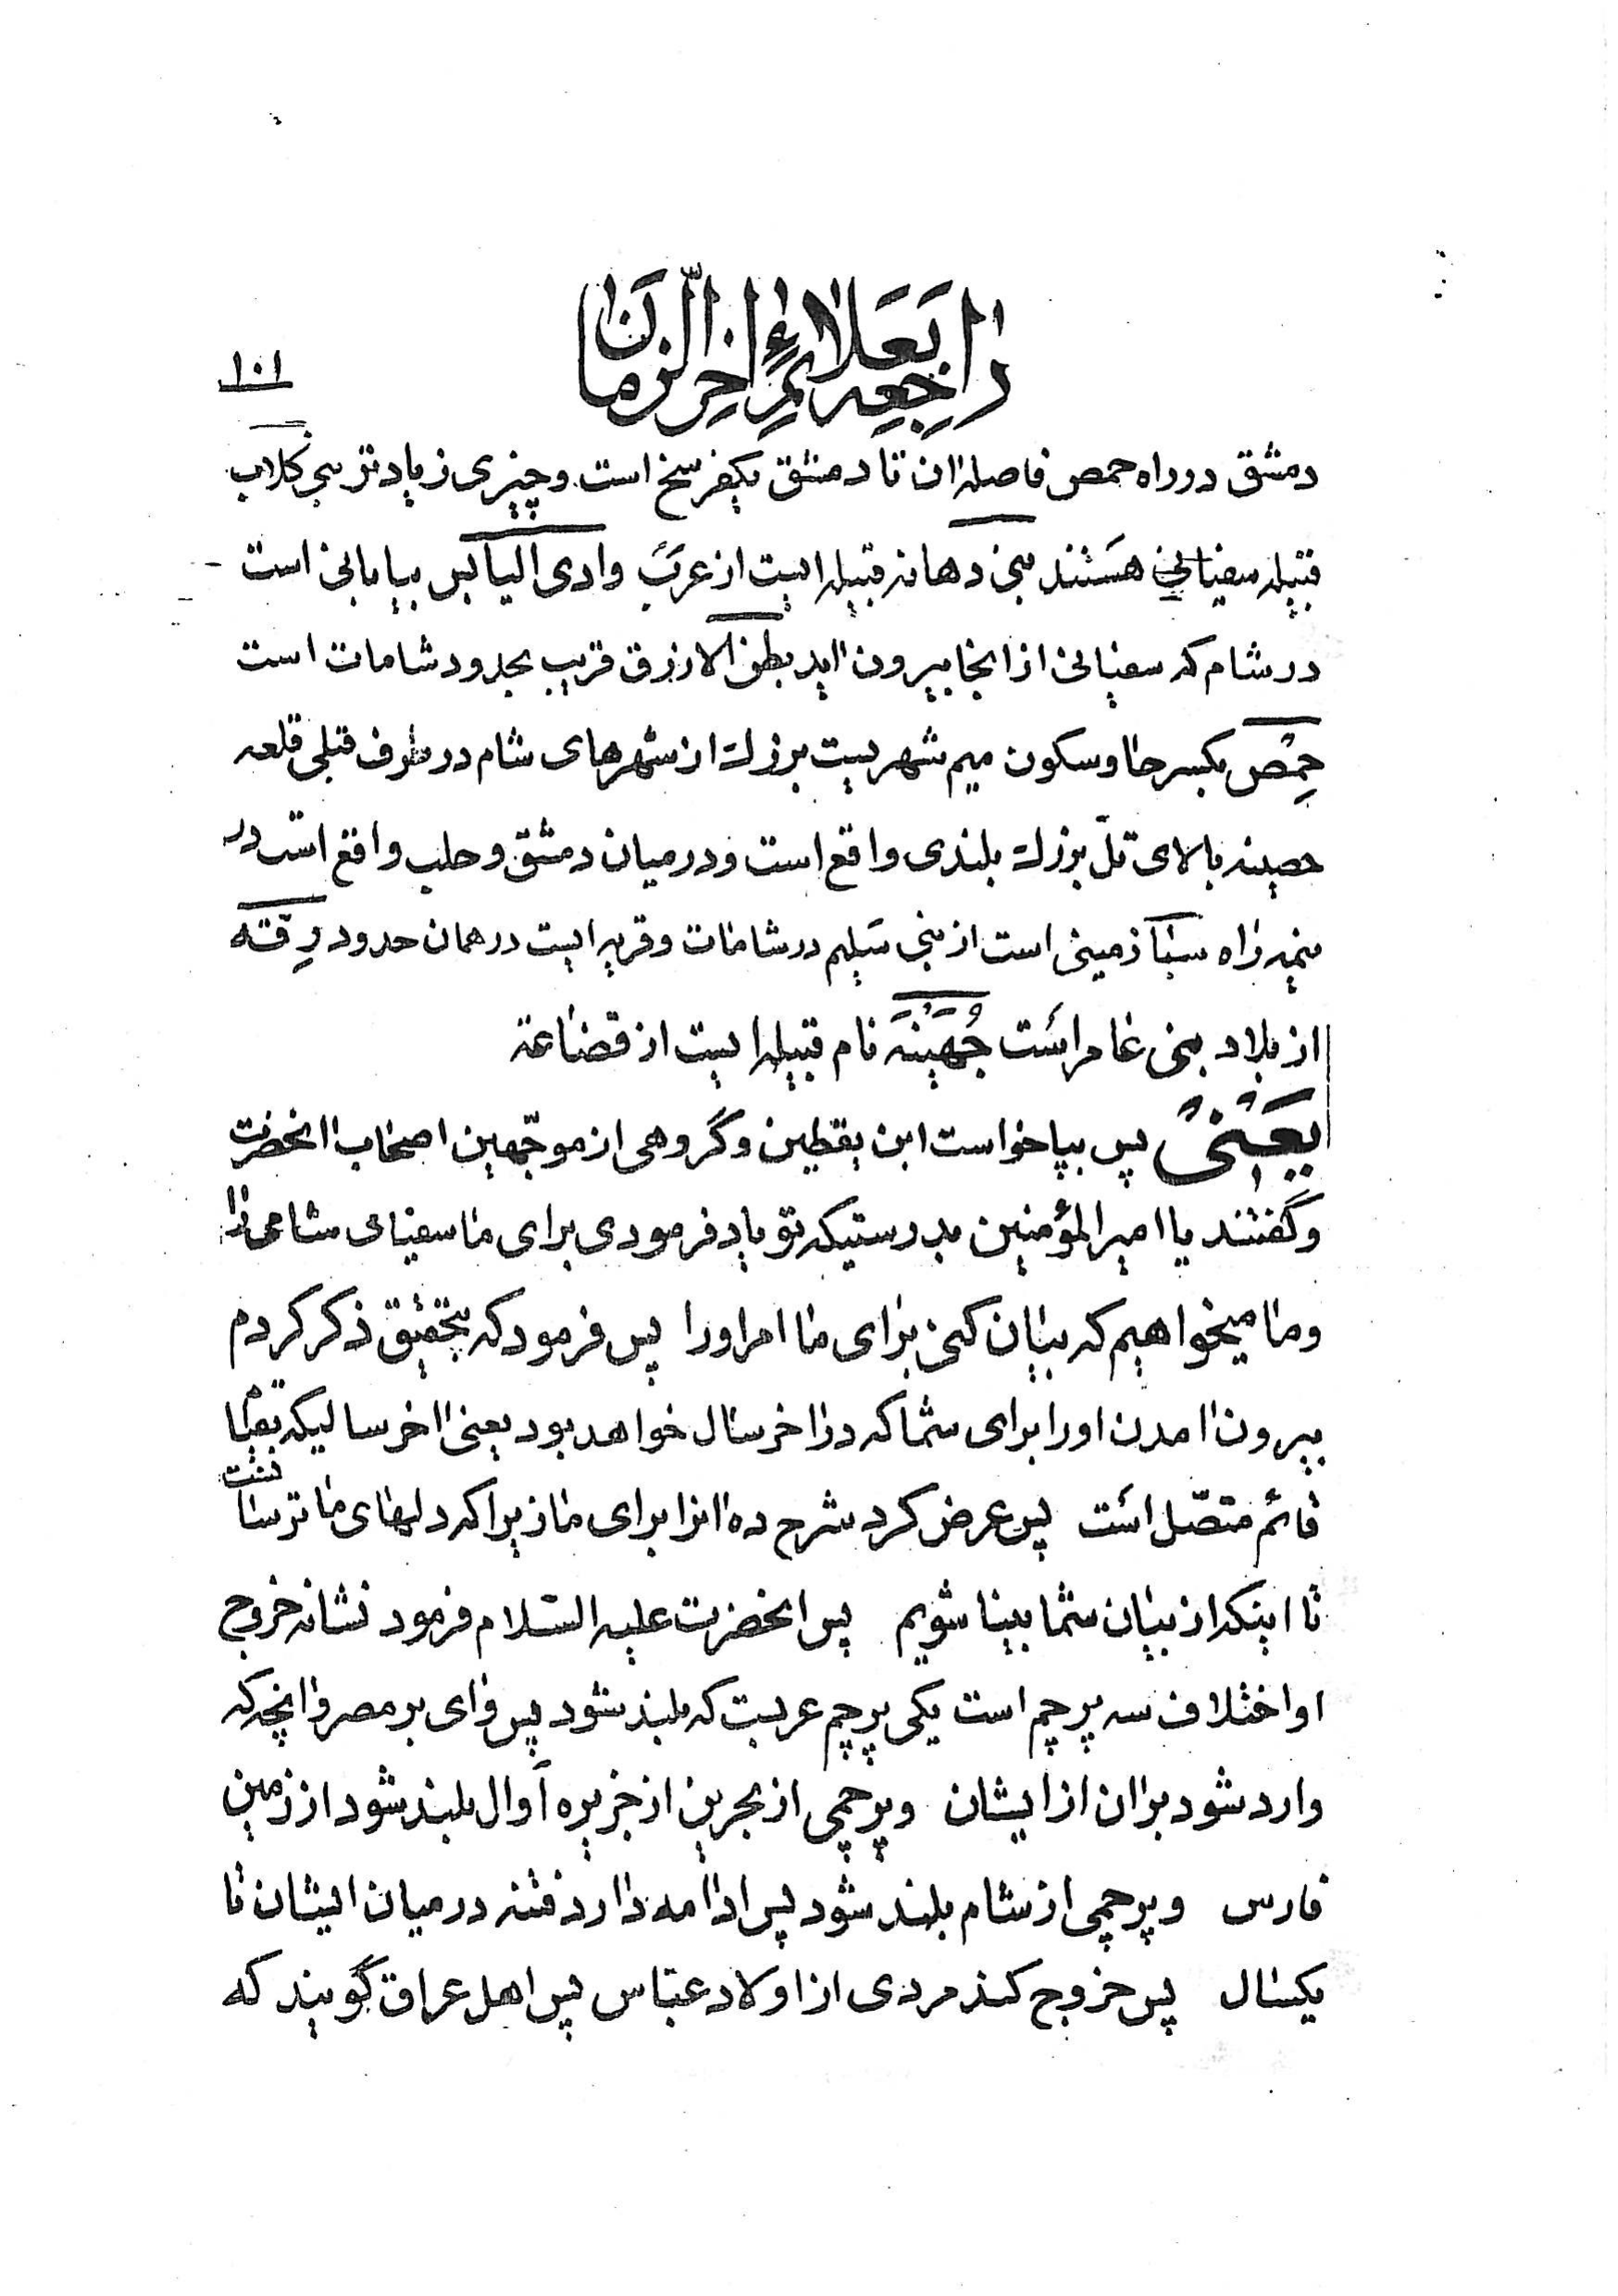 راجعه بعلائم اخر الزمان
۱۰۱
دمشق در راه حمص فاصلهٔ ان تا دمشق یکفرسخ است و چیزی زیادتر بنی کلاب
قبیلهٔ سفیانی هستند بنی دهانه قبیلهٔ ایست از عرب وادی الیابس بیابانی است
در شام که سفیانی از انجا بیرون اید بطن الازرق قریب بحدود شامات است
حِمْص بکسر حا و سکون میم شهریست بزرك از شهرهای شام در طرف قبلی قلعه
حصینه بالای تلّ بزرك بلندی واقع است و در میان دمشق و حلب واقع است در
نیمه راه سبنا زمینی است از بنی سلیم در شامات و قریهٔ ایست در همان حدود رِقّه
از بلاد بنی عامر است جُهَیْنَه نام قبیلهٔ ایست از قضاعة
یَعْنی پس بپا خواست ابن یقطین و گروهی از موجّهین اصحاب انحضرت
و گفتند یا امیر المؤمنین بدرستیکه تو یاد فرمودی برای ما سفیانی شامی را
و ما میخواهیم که بیان کنی برای ما امر اورا پس فرمود که بتحقیق ذکر کردم
بیرون امدن اورا برای شما که در اخر سال خواهد بود یعنی اخر سالیکه بقیام
قائم متصّل است پس عرض کرد شرح ده انرا برای ما زیرا که دلهای ما ترسناکست
تا اینکه از بیان شما بینا شویم پس انحضرت علیه السّلام فرمود نشانه خروج
او اختلاف سه پرچم است یکی پرچم عربست که بلند شود پس وای بر مصر و انچه که
وارد شود بر ان از ایشان و پرچمی از بحرین از جزیره اَوال بلند شود از زمین
فارس و پرچمی از شام بلند شود پس ادامه دارد فتنه در میان ایشان تا
یکسال پس خروج کند مردی از اولاد عبّاس پس اهل عراق گویند که